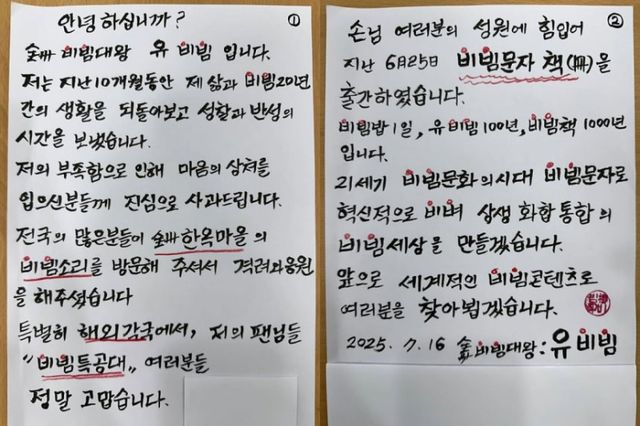 ①
안녕 하십니까?
비빔대왕 유비빔 입니다.
저는 지난 10개월동안 제 삶과 비빔 20년
간의 생활을 되돌아보고 성찰과 반성의
시간을 보냈습니다.
저의 부족함으로 인해 마음의 상처를
입으신분들께 진심으로 사과드립니다.
전국의 많은분들이 한옥마을의
비빔소리를 방문해 주셔서 격려와응원
을 해주셨습니다
특별히 해외각국에서, 저의 팬님들
"비빔특공대" 여러분들
정말 고맙습니다.
②
손님 여러분의 성원에 힘입어
지난 6월25일 비빔문자 책(冊)을
출간하였습니다.
비빔밥 1일, 유비빔 100년, 비빔책 1000년
입니다.
21세기 비빔문화의시대 비빔문자로
혁신적으로 비벼 상생 화합 통합의
비빔세상을 만들겠습니다.
앞으로 세계적인 비빔콘텐츠로
여러분을 찾아뵙겠습니다.
2025. 7. 16 비빔대왕: 유비빔